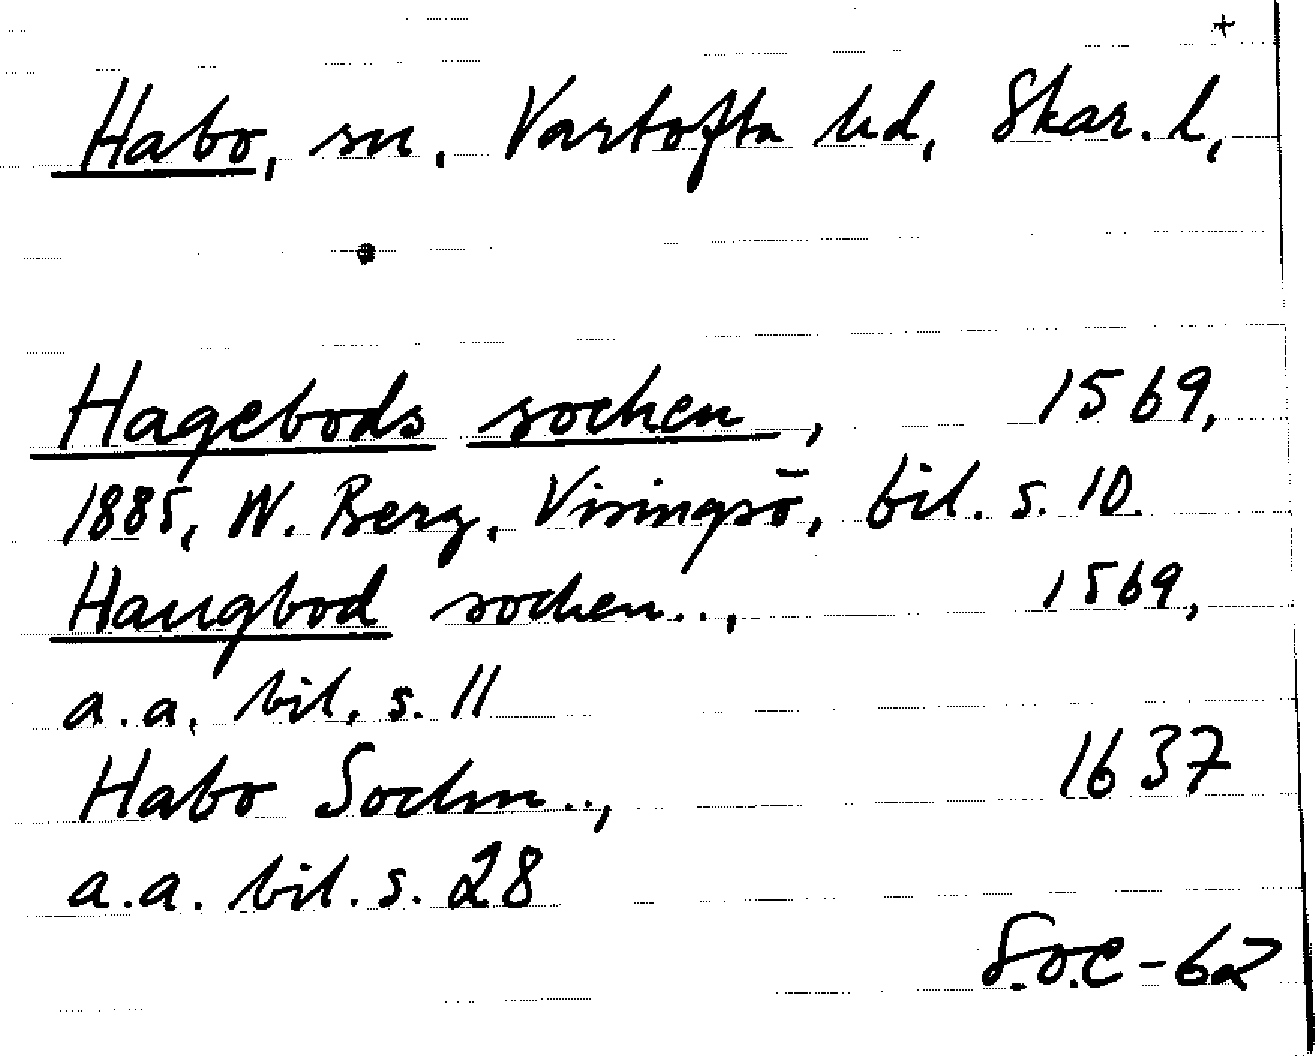 +
Habo, sn, Vartofta hd, Skar. l,
Hagebods socken, 1569,
1885, W. Berg, Visingsö, bil. s. 10.
Haugbod socken.., 1569,
a.a. bil. s. 11
Habo Sockn.., 1637
a.a. bil. s. 28
S.o.C-62